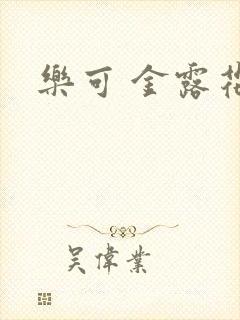 樂可 金露花
吳偉業